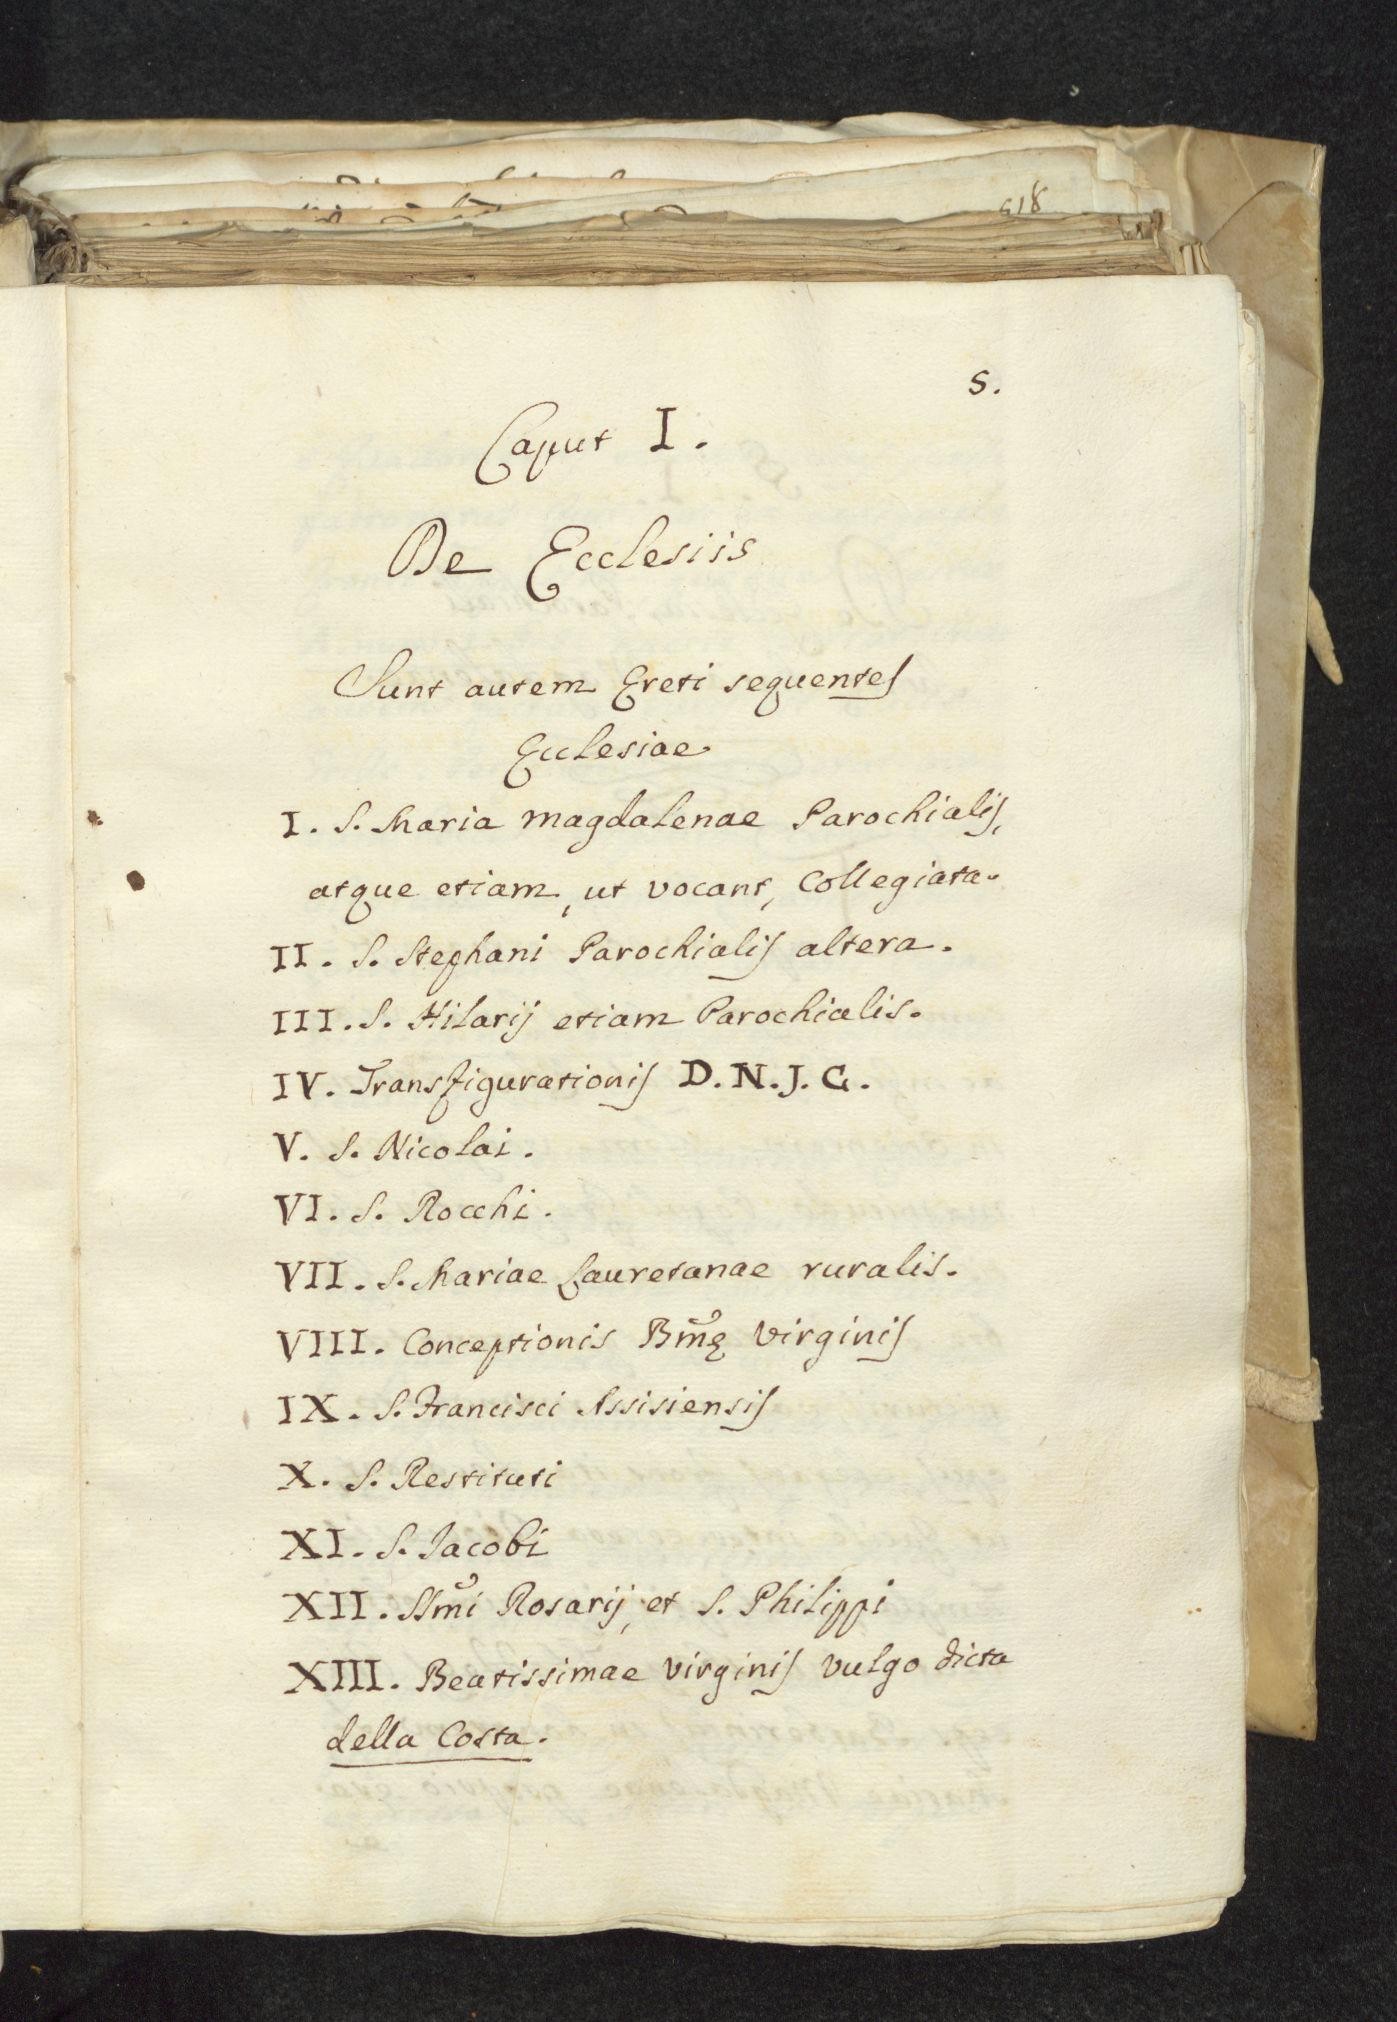 518
5.
Caput I.
De Ecclesiis
Sunt autem Ereti sequentes
Ecclesiae
I. S. Maria Magdalenae Parochialis,
atque etiam, ut vocant, Collegiata.
II. S. Stephani Parochialis altera.
III. S. Hilarij etiam Parochialis.
IV. Transfigurationis D.N.J.C.
V. S. Nicolai.
VI. S. Rocchi.
VII. S. Mariae Lauretanae ruralis.
VIII. Conceptionis Bm̃ę Virginis
IX. S. Francisci Assisiensis
X. S. Restituti
XI. S. Jacobi
XII. SSm̃i Rosarij, et S. Philippi
XIII. Beatissimae Virginis vulgo dicta
della Costa.